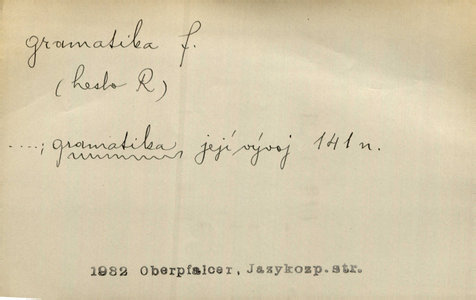 gramatika f.
(heslo R)
....; gramatika, její vývoj 141 n.
1932 Oberpfalcer, Jazykozp.str.